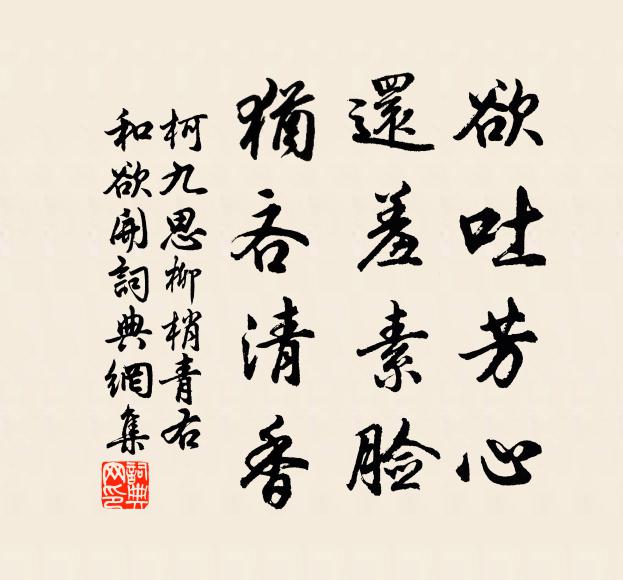 欲吐芳心
還羞素臉
猶吝清香
柯九思柳梢青右
和欲開詞典網集
詞典網印